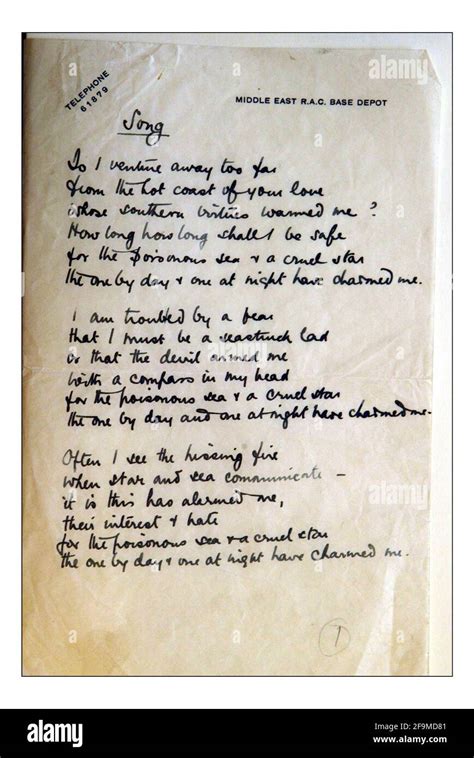 TELEPHONE
61879
MIDDLE EAST R.A.C. BASE DEPOT
Song
Do I venture away too far
from the hot coast of your love
whose southern virtues warmed me?
How long how long shall I be safe
for the poisonous sea & a cruel star
the one by day & one at night have charmed me.
I am troubled by a fear
that I must be a seastruck lad
or that the devil armed me
with a compass in my head
for the poisonous sea & a cruel star
the one by day and one at night have charmed me.
Often I see the hissing fire
when star and sea communicate –
it is this has alarmed me,
their interest & hate
for the poisonous sea & a cruel star
the one by day & one at night have charmed me.
1
alamy
alamy
alamy
alamy
Image ID: 2F9MD81
www.alamy.com